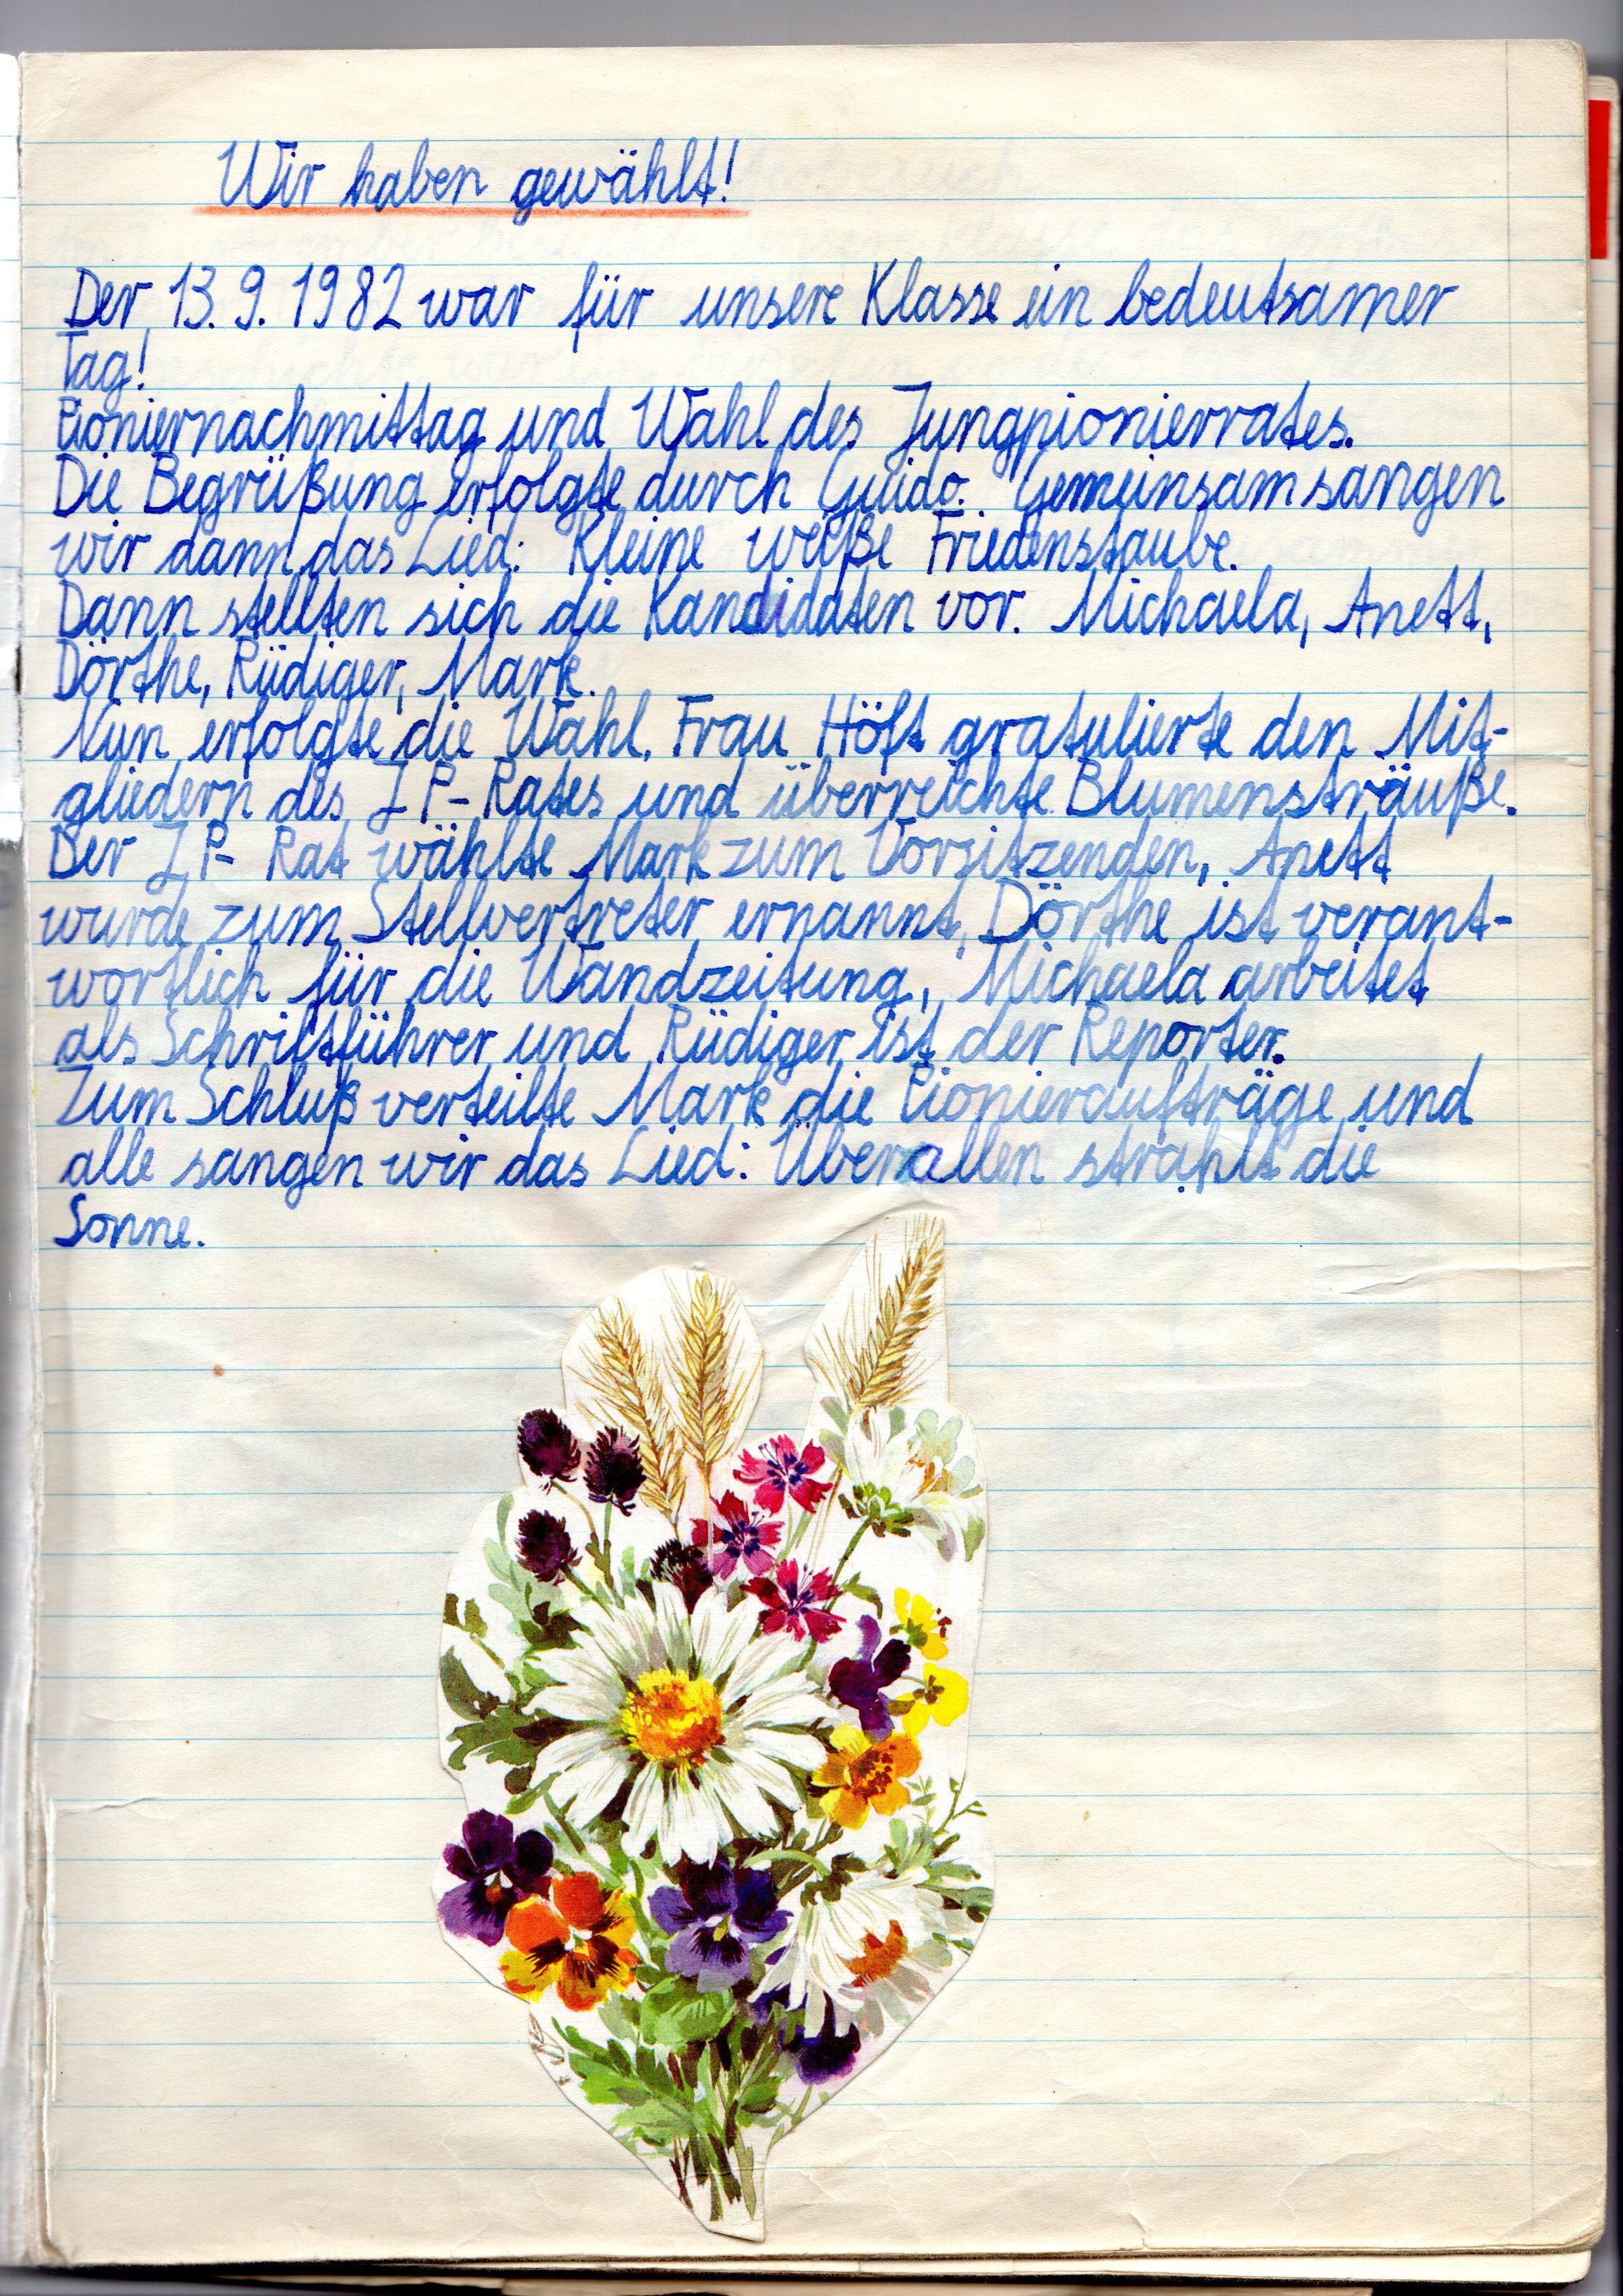 Wir haben gewählt!
Der 13.9.1982 war für unsere Klasse ein bedeutsamer
Tag!
Pioniernachmittag und Wahl des Jungpionierrates.
Die Begrüßung erfolgte durch Guido. Gemeinsam sangen
wir dann das Lied: Kleine weiße Friedenstaube.
Dann stellten sich die Kandidaten vor. Michaela, Anett,
Dörthe, Rüdiger, Mark.
Nun erfolgte die Wahl. Frau Höft gratulierte den Mit-
gliedern des JP-Rates und überreichte Blumensträuße.
Der JP-Rat wählte Mark zum Vorsitzenden, Anett
wurde zum Stellvertreter ernannt, Dörthe ist verant-
wortlich für die Wandzeitung, Michaela arbeitet
als Schriftführer und Rüdiger ist der Reporter.
Zum Schluß verteilte Mark die Pionieraufträge und
alle sangen wir das Lied: Über allen strahlt die
Sonne.